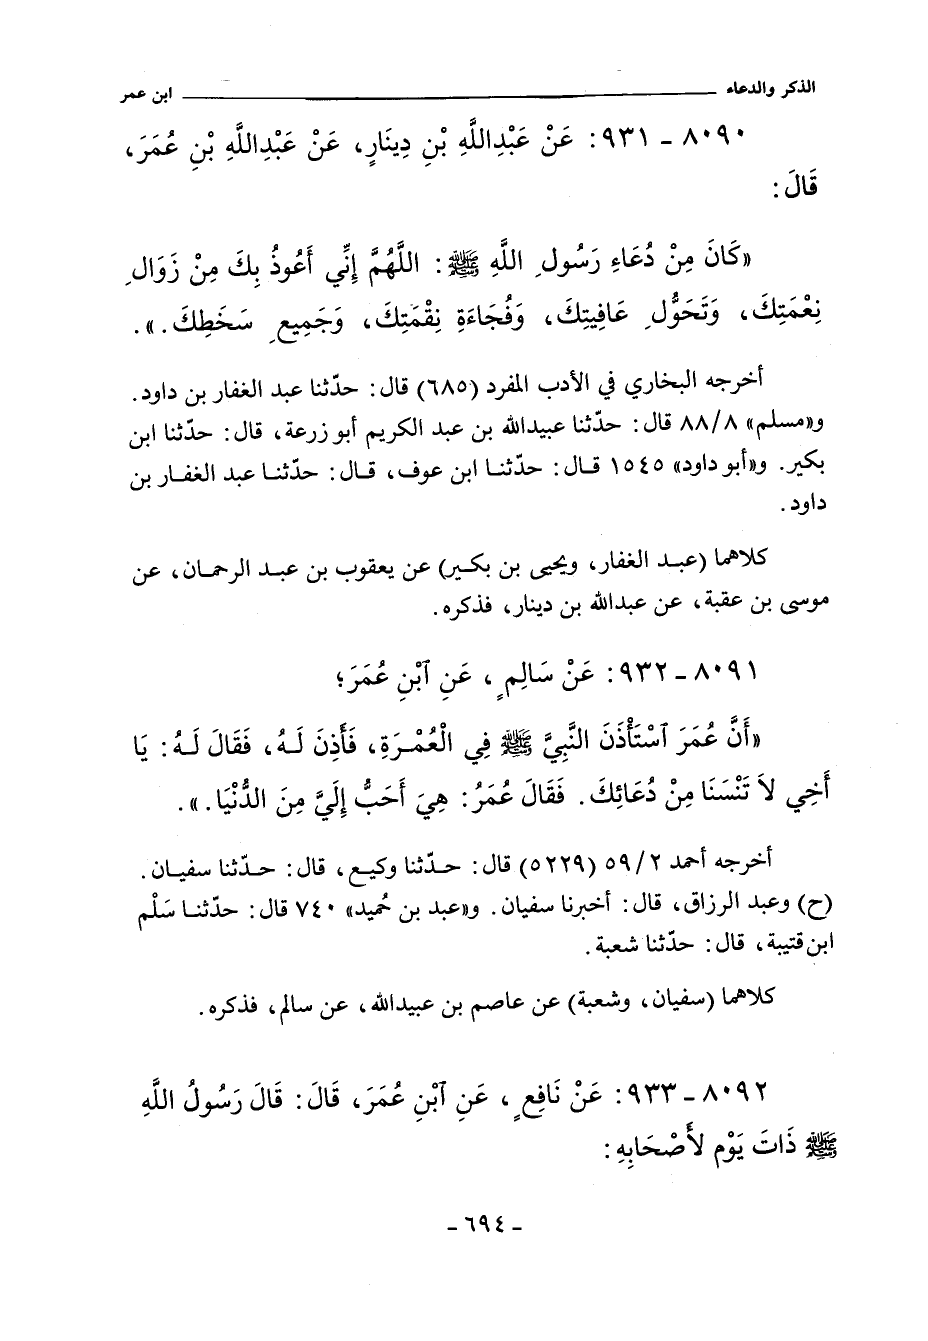 الذكر والدعاء ابن عمر
٨٠٩٠ - ٩٣١: عَنْ عَبْدِاللَّهِ بْنِ دِينَارٍ، عَنْ عَبْدِاللَّهِ بْنِ عُمَرَ،
قَالَ:
«كَانَ مِنْ دُعَاءِ رَسُولِ اللَّهِ ﷺ: اللَّهُمَّ إِنِّي أَعُوذُ بِكَ مِنْ زَوَالِ
نِعْمَتِكَ، وَتَحَوُّلِ عَافِيتِكَ، وَفُجَاءَةِ نِقْمَتِكَ، وَجَمِيعِ سَخَطِكَ.».
أخرجه البخاري في الأدب المفرد (٦٨٥) قال: حدّثنا عبد الغفار بن داود.
و«مسلم» ٨٨/٨ قال: حدّثنا عبيدالله بن عبد الكريم أبو زرعة، قال: حدّثنا ابن
بكير. و«أبو داود» ١٥٤٥ قال: حدّثنا ابن عوف، قال: حدّثنا عبد الغفار بن
داود.
كلاهما (عبد الغفار، ويحيى بن بكير) عن يعقوب بن عبد الرحمان، عن
موسى بن عقبة، عن عبدالله بن دينار، فذكره.
٨٠٩١ - ٩٣٢: عَنْ سَالِمٍ، عَنِ ٱبْنِ عُمَرَ؛
«أَنَّ عُمَرَ ٱسْتَأْذَنَ النَّبِيَّ ﷺ فِي الْعُمْرَةِ، فَأَذِنَ لَهُ، فَقَالَ لَهُ: يَا
أَخِي لاَ تَنْسَنَا مِنْ دُعَائِكَ. فَقَالَ عُمَرُ: هِيَ أَحَبُّ إِلَيَّ مِنَ الدُّنْيَا.».
أخرجه أحمد ٥٩/٢ (٥٢٢٩) قال: حدّثنا وكيع، قال: حدّثنا سفيان.
(ح) وعبد الرزاق، قال: أخبرنا سفيان. و«عبد بن حُميد» ٧٤٠ قال: حدّثنا سَلْم
ابن قتيبة، قال: حدّثنا شعبة.
كلاهما (سفيان، وشعبة) عن عاصم بن عبيدالله، عن سالم، فذكره.
٨٠٩٢ - ٩٣٣: عَنْ نَافِعٍ، عَنِ ٱبْنِ عُمَرَ، قَالَ: قَالَ رَسُولُ اللَّهِ
ﷺ ذَاتَ يَوْمٍ لأَصْحَابِهِ:
- ٦٩٤ -